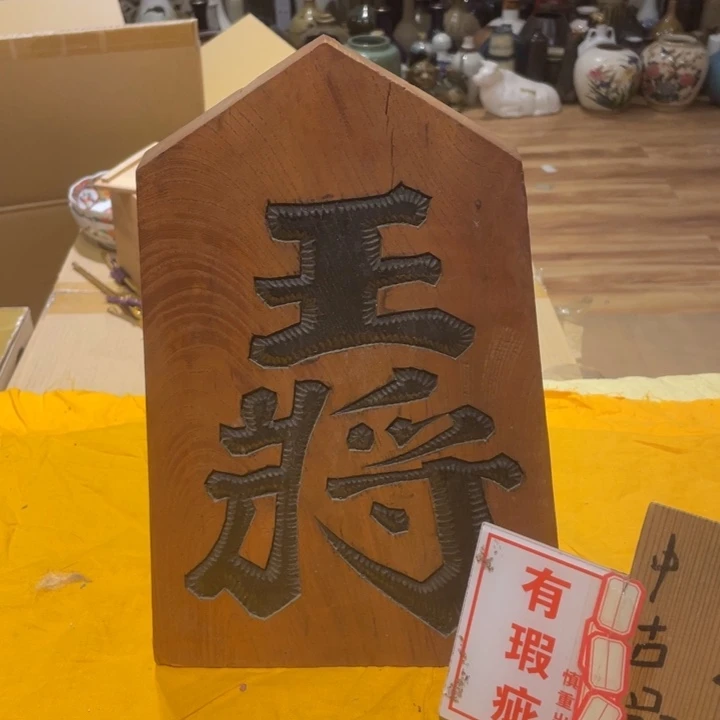 王
将
有瑕疵
慎重
中古